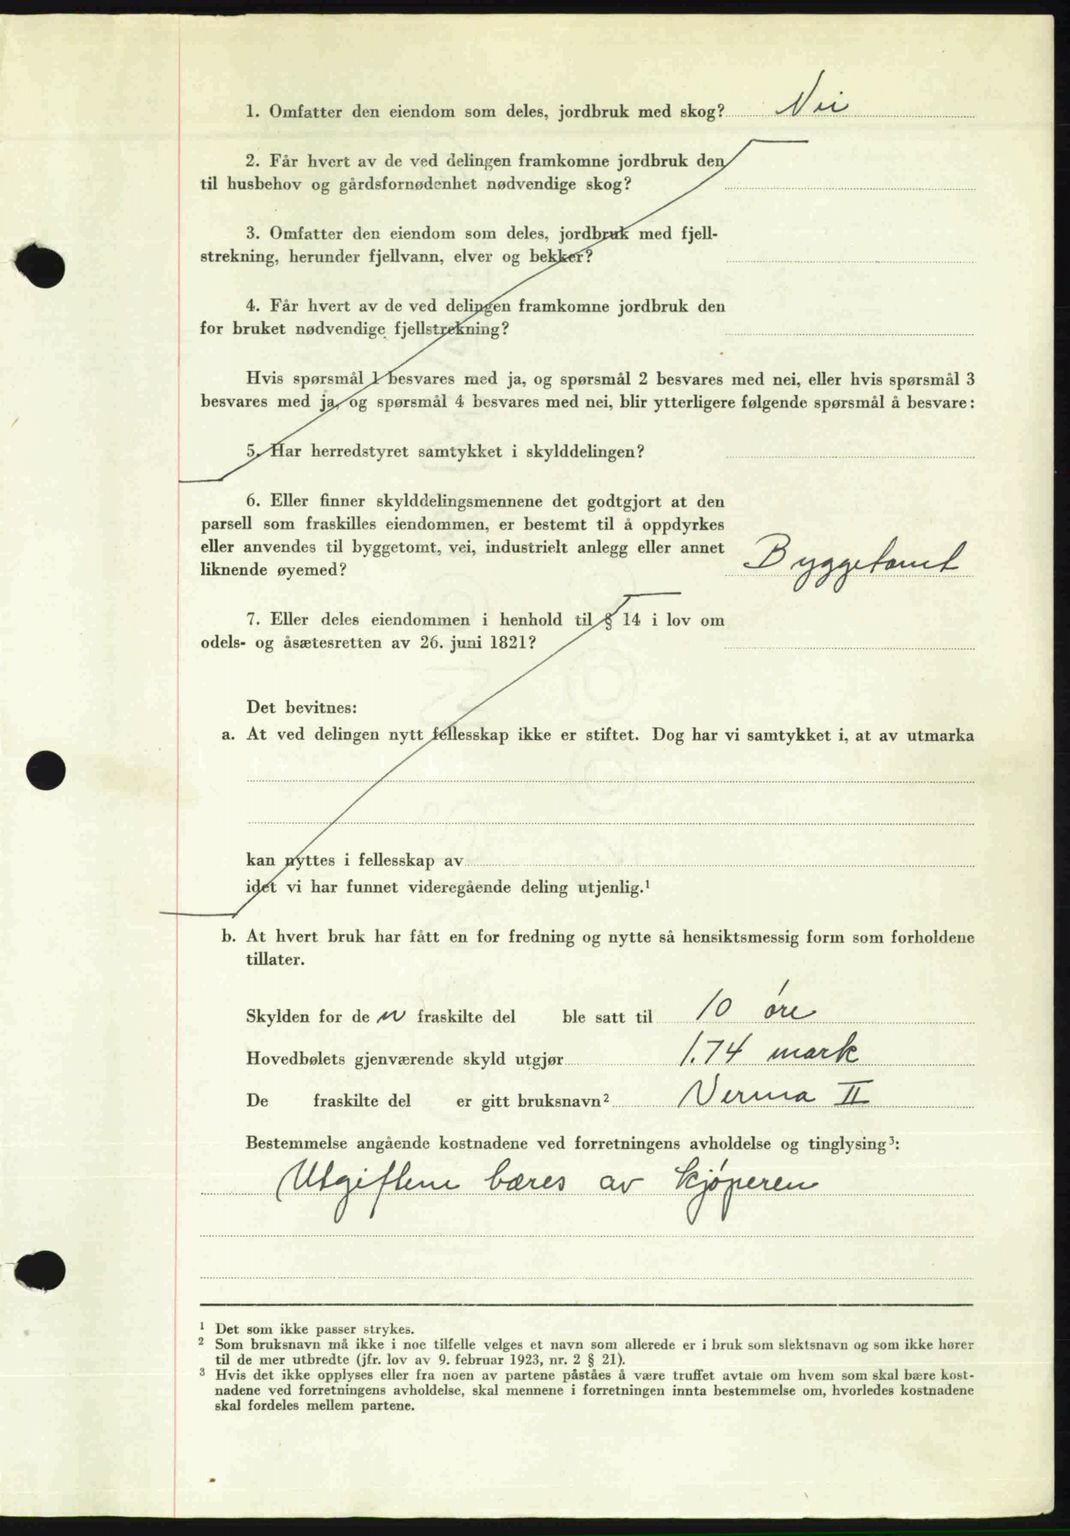 1. Omfatter den eiendom som deles, jordbruk med skog? Nei
2. Får hvert av de ved delingen framkomne jordbruk den
til husbehov og gårdsfornødenhet nødvendige skog?
3. Omfatter den eiendom som deles, jordbruk med fjell-
strekning, herunder fjellvann, elver og bekker?
4. Får hvert av de ved delingen framkomne jordbruk den
for bruket nødvendige fjellstrekning?
Hvis spørsmål 1 besvares med ja, og spørsmål 2 besvares med nei, eller hvis spørsmål 3
besvares med ja, og spørsmål 4 besvares med nei, blir ytterligere følgende spørsmål å besvare:
5. Har herredstyret samtykket i skylddelingen?
6. Eller finner skylddelingsmennene det godtgjort at den
parsell som fraskilles eiendommen, er bestemt til å oppdyrkes
eller anvendes til byggetomt, vei, industrielt anlegg eller annet
liknende øyemed? Byggetomt
7. Eller deles eiendommen i henhold til § 14 i lov om
odels- og åsætesretten av 26. juni 1821?
Det bevitnes:
a. At ved delingen nytt fellesskap ikke er stiftet. Dog har vi samtykket i, at av utmarka
kan nyttes i fellesskap av
idet vi har funnet videregående deling utjenlig.¹
b. At hvert bruk har fått en for fredning og nytte så hensiktsmessig form som forholdene
tillater.
Skylden for de n fraskilte del ble satt til 10 øre
Hovedbølets gjenværende skyld utgjør 1.74 mark
De fraskilte del er gitt bruksnavn² Verma II
Bestemmelse angående kostnadene ved forretningens avholdelse og tinglysing³:
Utgiftene bæres av kjøperen
¹ Det som ikke passer strykes.
² Som bruksnavn må ikke i noe tilfelle velges et navn som allerede er i bruk som slektsnavn og som ikke hører
til de mer utbredte (jfr. lov av 9. februar 1923, nr. 2 § 21).
³ Hvis det ikke opplyses eller fra noen av partene påståes å være truffet avtale om hvem som skal bære kost-
nadene ved forretningens avholdelse, skal mennene i forretningen innta bestemmelse om, hvorledes kostnadene
skal fordeles mellem partene.